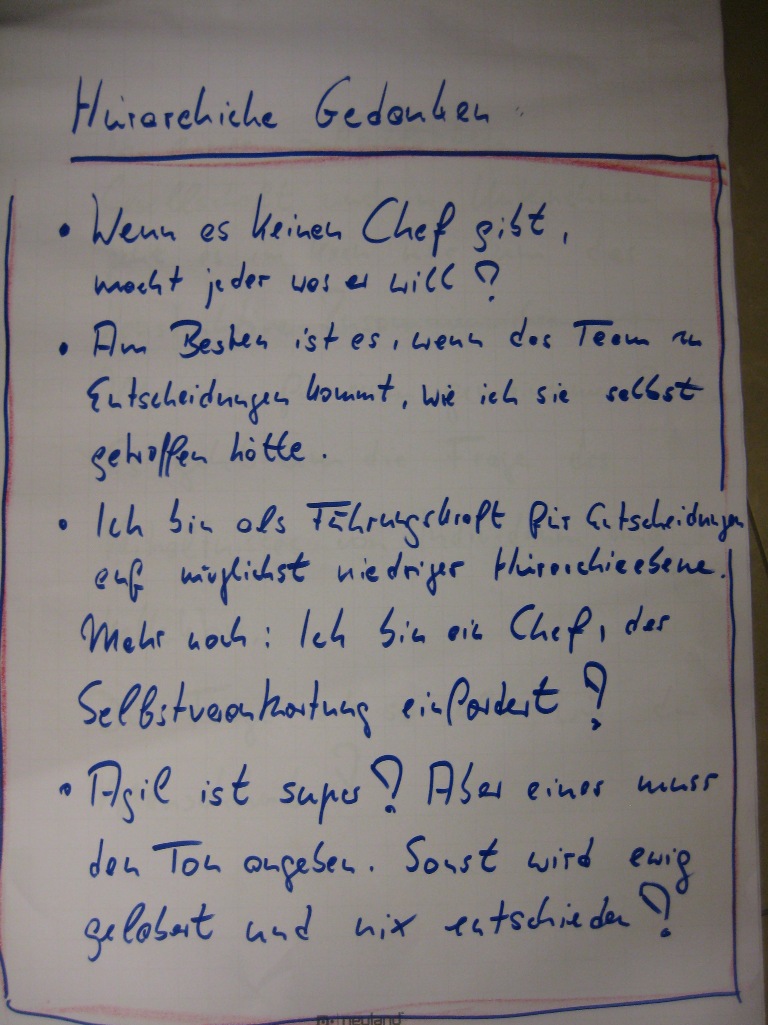 Hierarchiche Gedanken
• Wenn es keinen Chef gibt,
macht jeder was er will?
• Am Besten ist es, wenn das Team zu
Entscheidungen kommt, wie ich sie selbst
getroffen hätte.
• Ich bin als Führungskraft für Entscheidungen
auf möglichst niedriger Hierarchieebene.
Mehr noch: Ich bin ein Chef, der
Selbstverantwortung einfordert?
• Agil ist super? Aber einer muss
den Ton angeben. Sonst wird ewig
gelabert und nix entschieden?
neuland